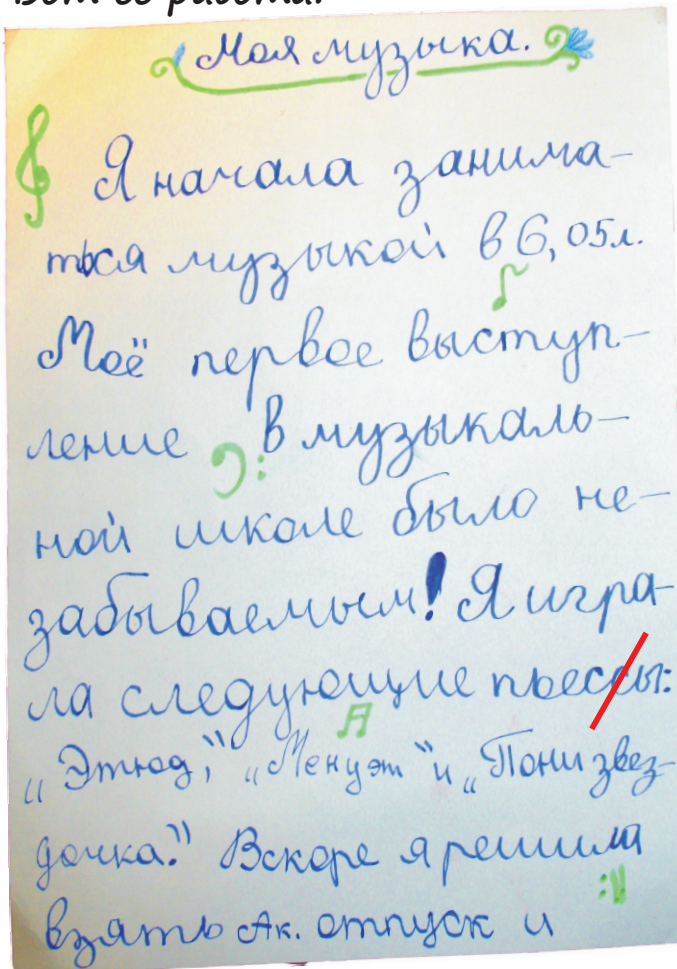 Вот её работа:
Моя музыка.
Я начала занима-
ться музыкой в 6,05л.
Моё первое выступ-
ление в музыкаль-
ной школе было не-
забываемым! Я игра-
ла следующие пьессы:
„Этюд“, „Менуэт“ и „Пони звез-
дочка.“ Вскоре я решила
взять Ак. отпуск и